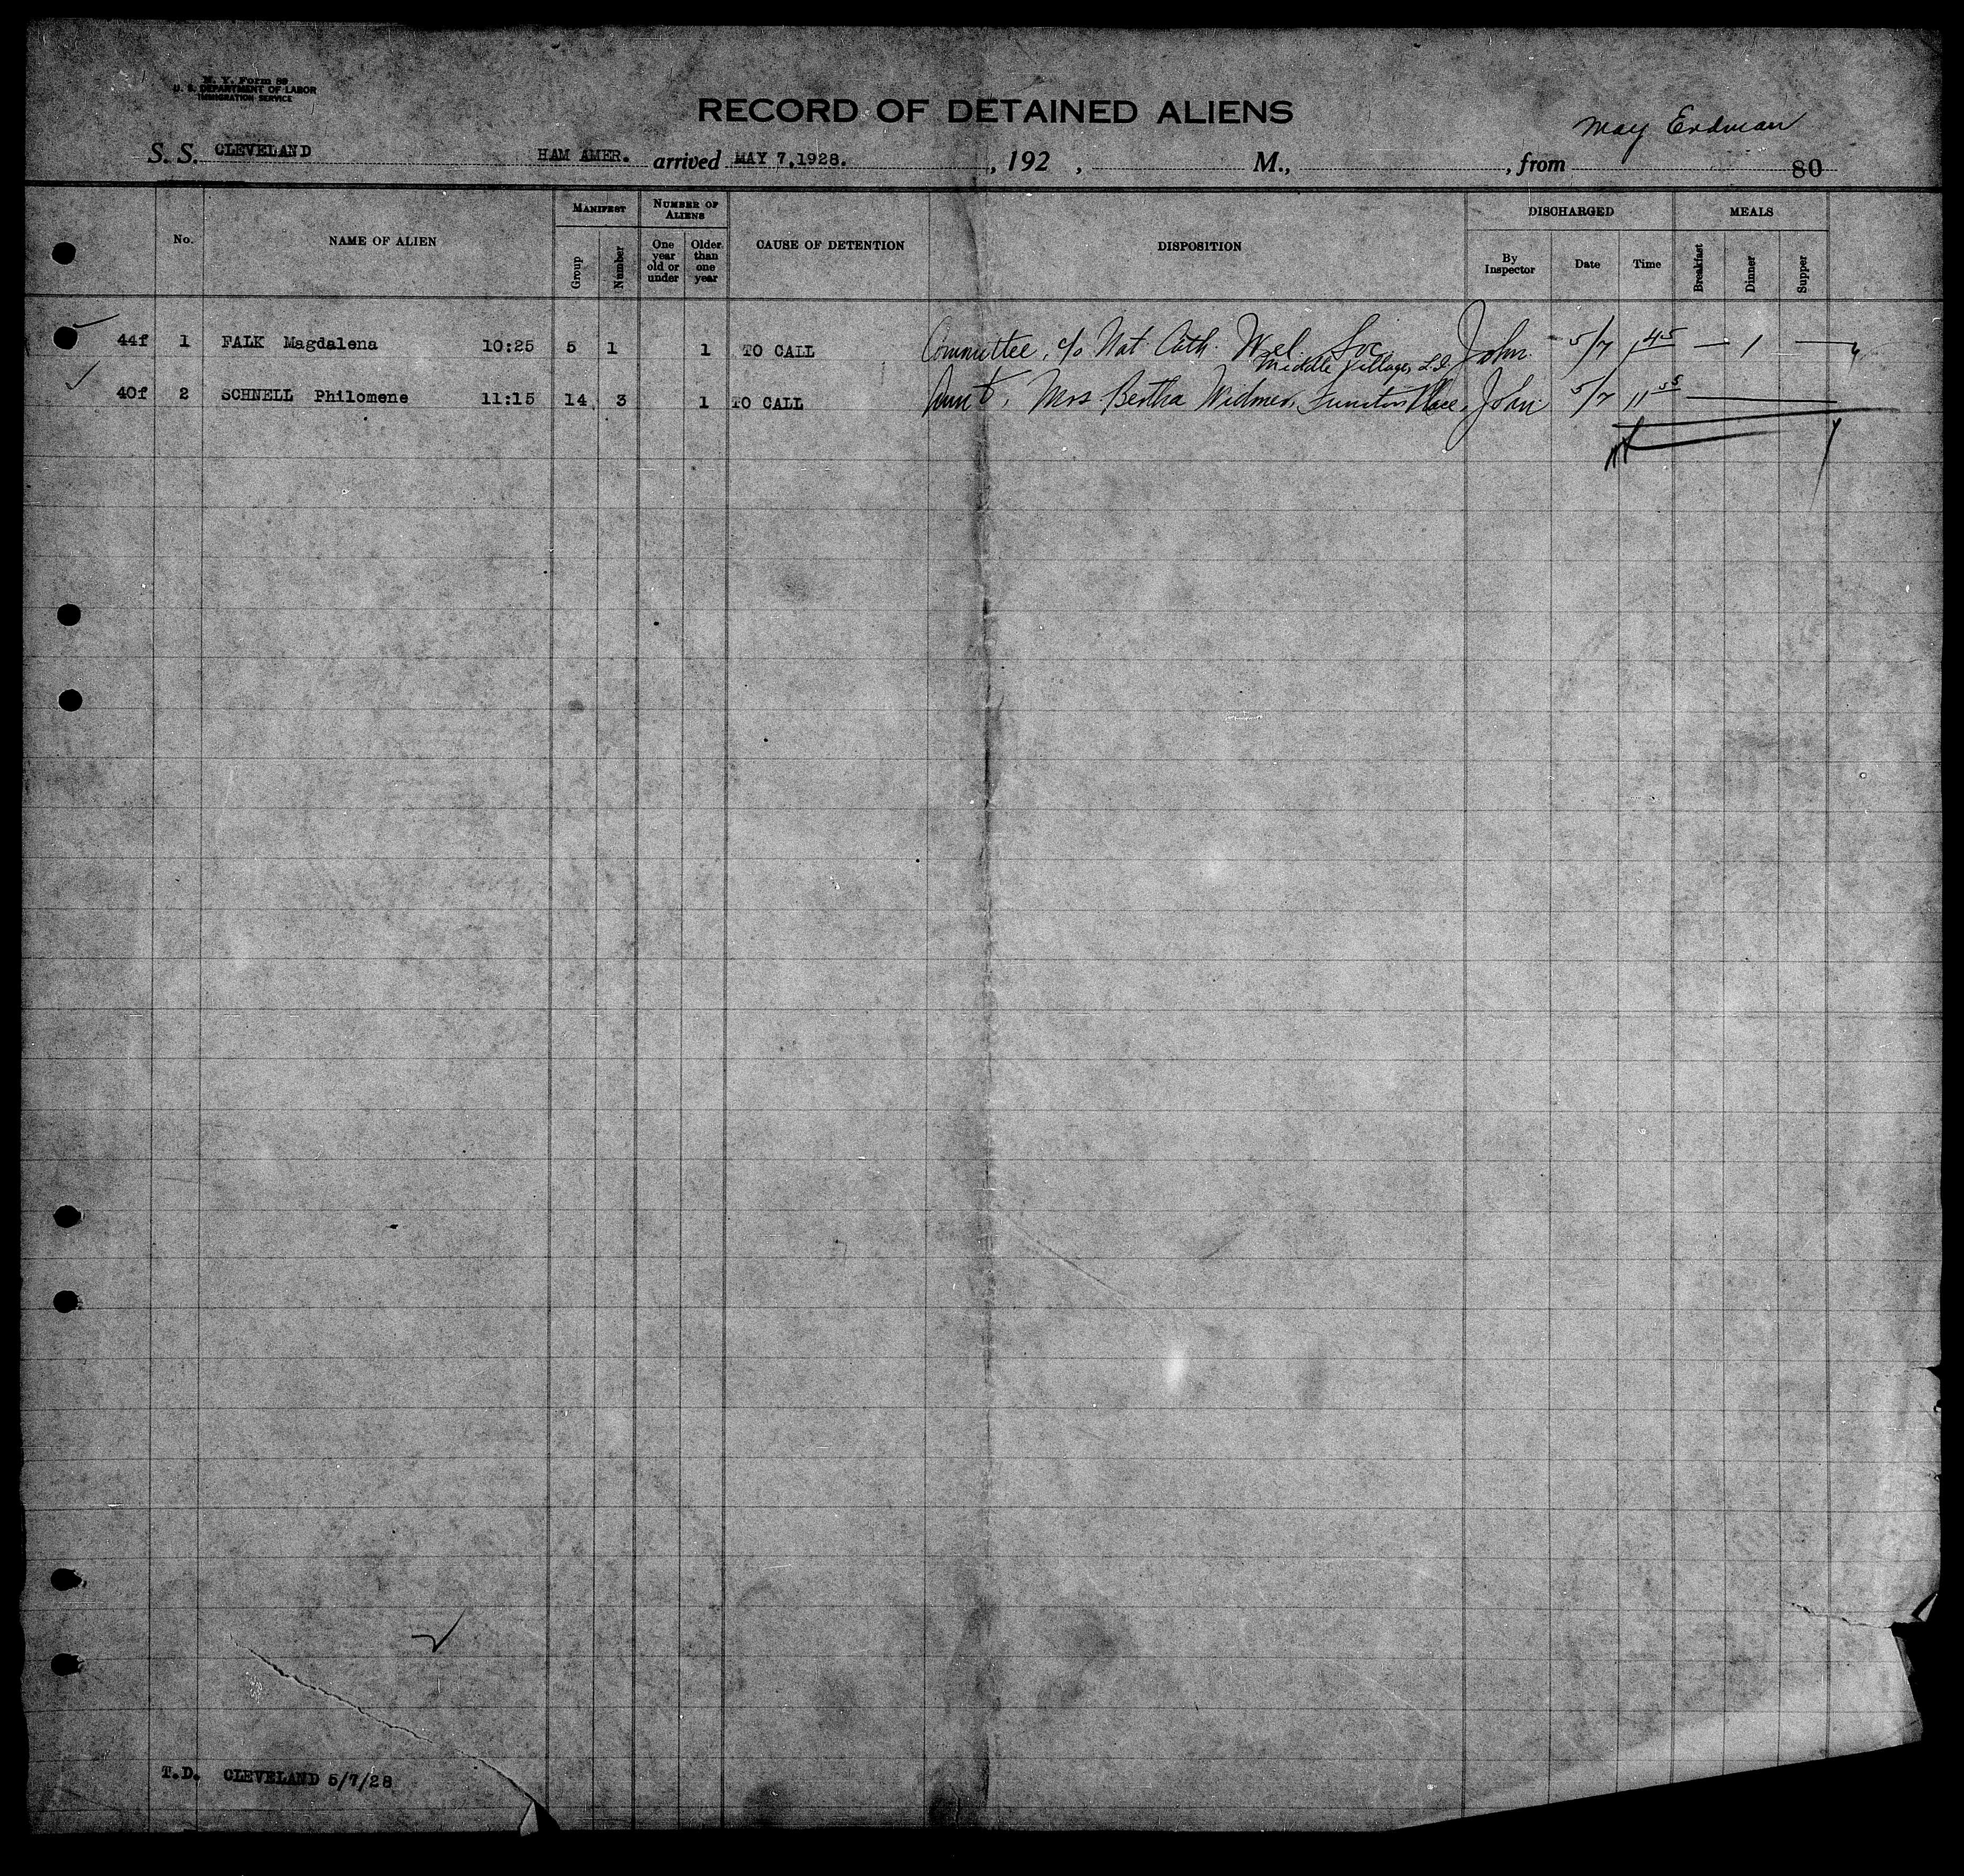 N. Y. Form 89
U. S. DEPARTMENT OF LABOR
IMMIGRATION SERVICE
RECORD OF DETAINED ALIENS
May Erdman
S. S. CLEVELAND HAM AMER. arrived MAY 7, 1928. , 192 , M., , from 80
No. NAME OF ALIEN MANIFEST Group Number NUMBER OF ALIENS One year old or under Older than one year CAUSE OF DETENTION DISPOSITION DISCHARGED By Inspector Date Time MEALS Breakfast Dinner Supper
44f 1 FALK Magdalena 10:25 5 1 1 TO CALL Committee, c/o Nat. Cath. Wel. Soc John 5/7 1 45 — 1 —
Middle Village, L.I.
40f 2 SCHNELL Philomene 11:15 14 3 1 TO CALL Aunt, Mrs Bertha Widmer, Place, John 5/7 11 55
T.D. CLEVELAND 5/7/28